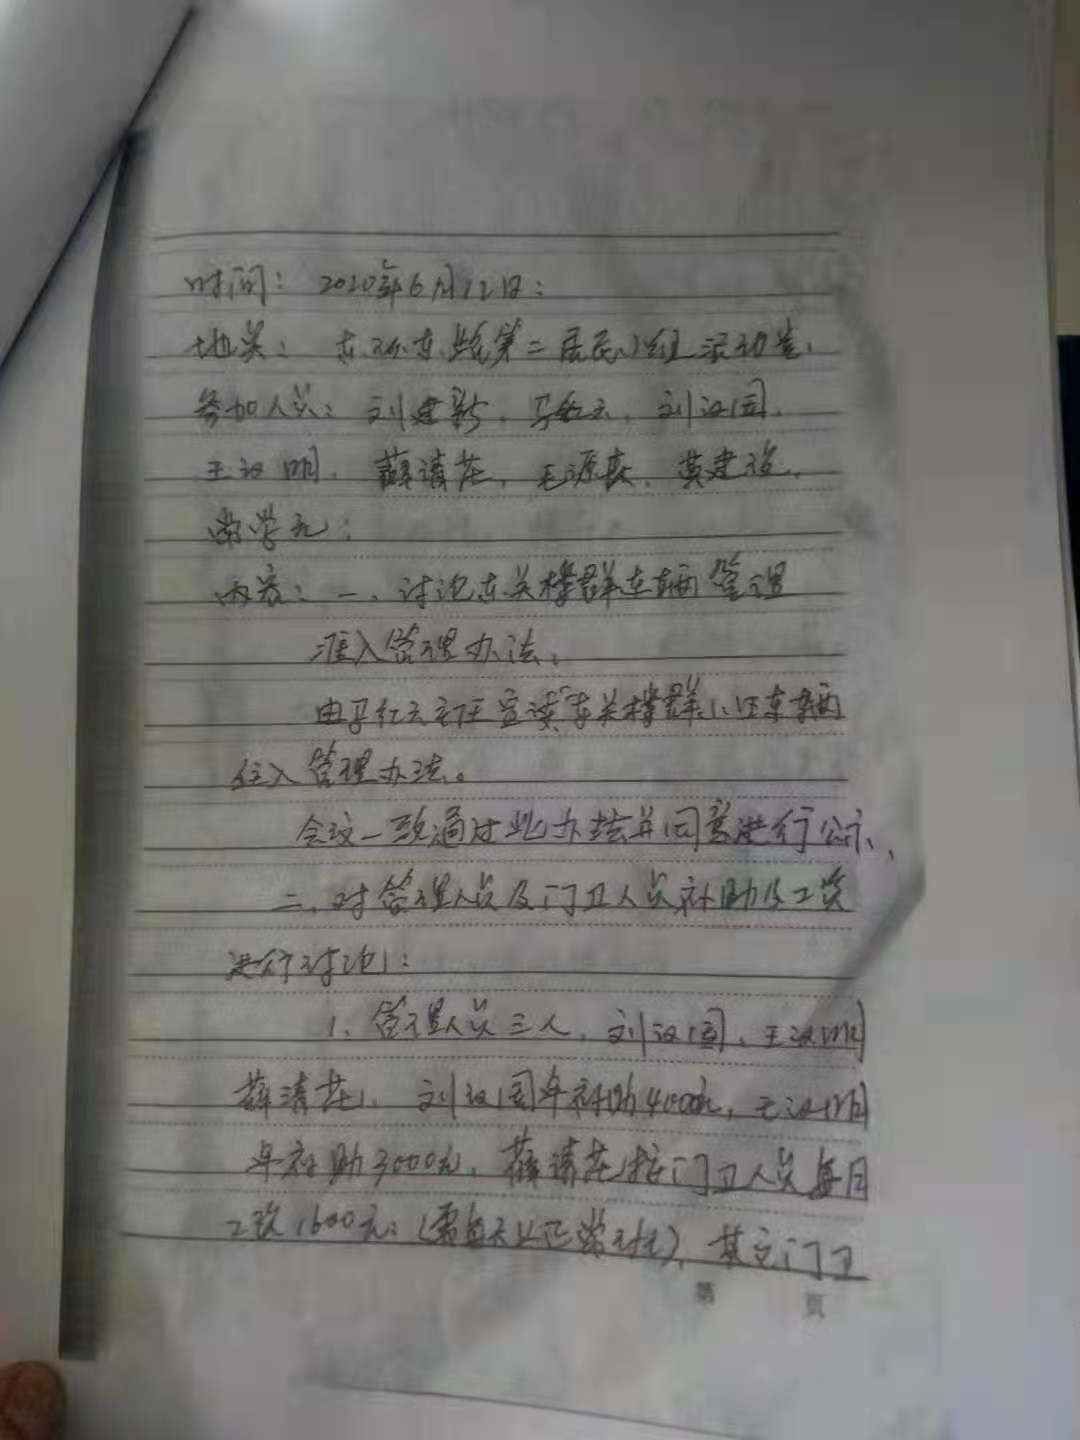 时间：2020年6月12日：
地点：东环东路第二居民小组活动室.
参加人员：刘建新、马红云、刘汉国、
王汉明、薛清莲、毛源森、黄建设、
常学礼：
内容：一、讨论东关楼群车辆管理
准入管理办法。
由马红云主任宣读"东关楼群小区车辆
准入管理办法。
会议一致通过此办法并同意进行公示、
二、对管理人员及门卫人员补助及工资
进行讨论：
1、管理人员三人，刘汉国、王汉明
薛清莲、刘汉国年补助4000元，王汉明
年补助3000元，薛清莲按门卫人员每月
工资1600元：(需每天上正常班)，其它门卫
第 页